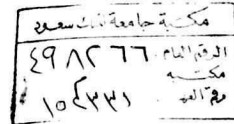 مكتبة جامعة الملك سعود
الرقم العام ٤٩٨٢٦٦
مكتبة
رقم ١٥٤٣٣١